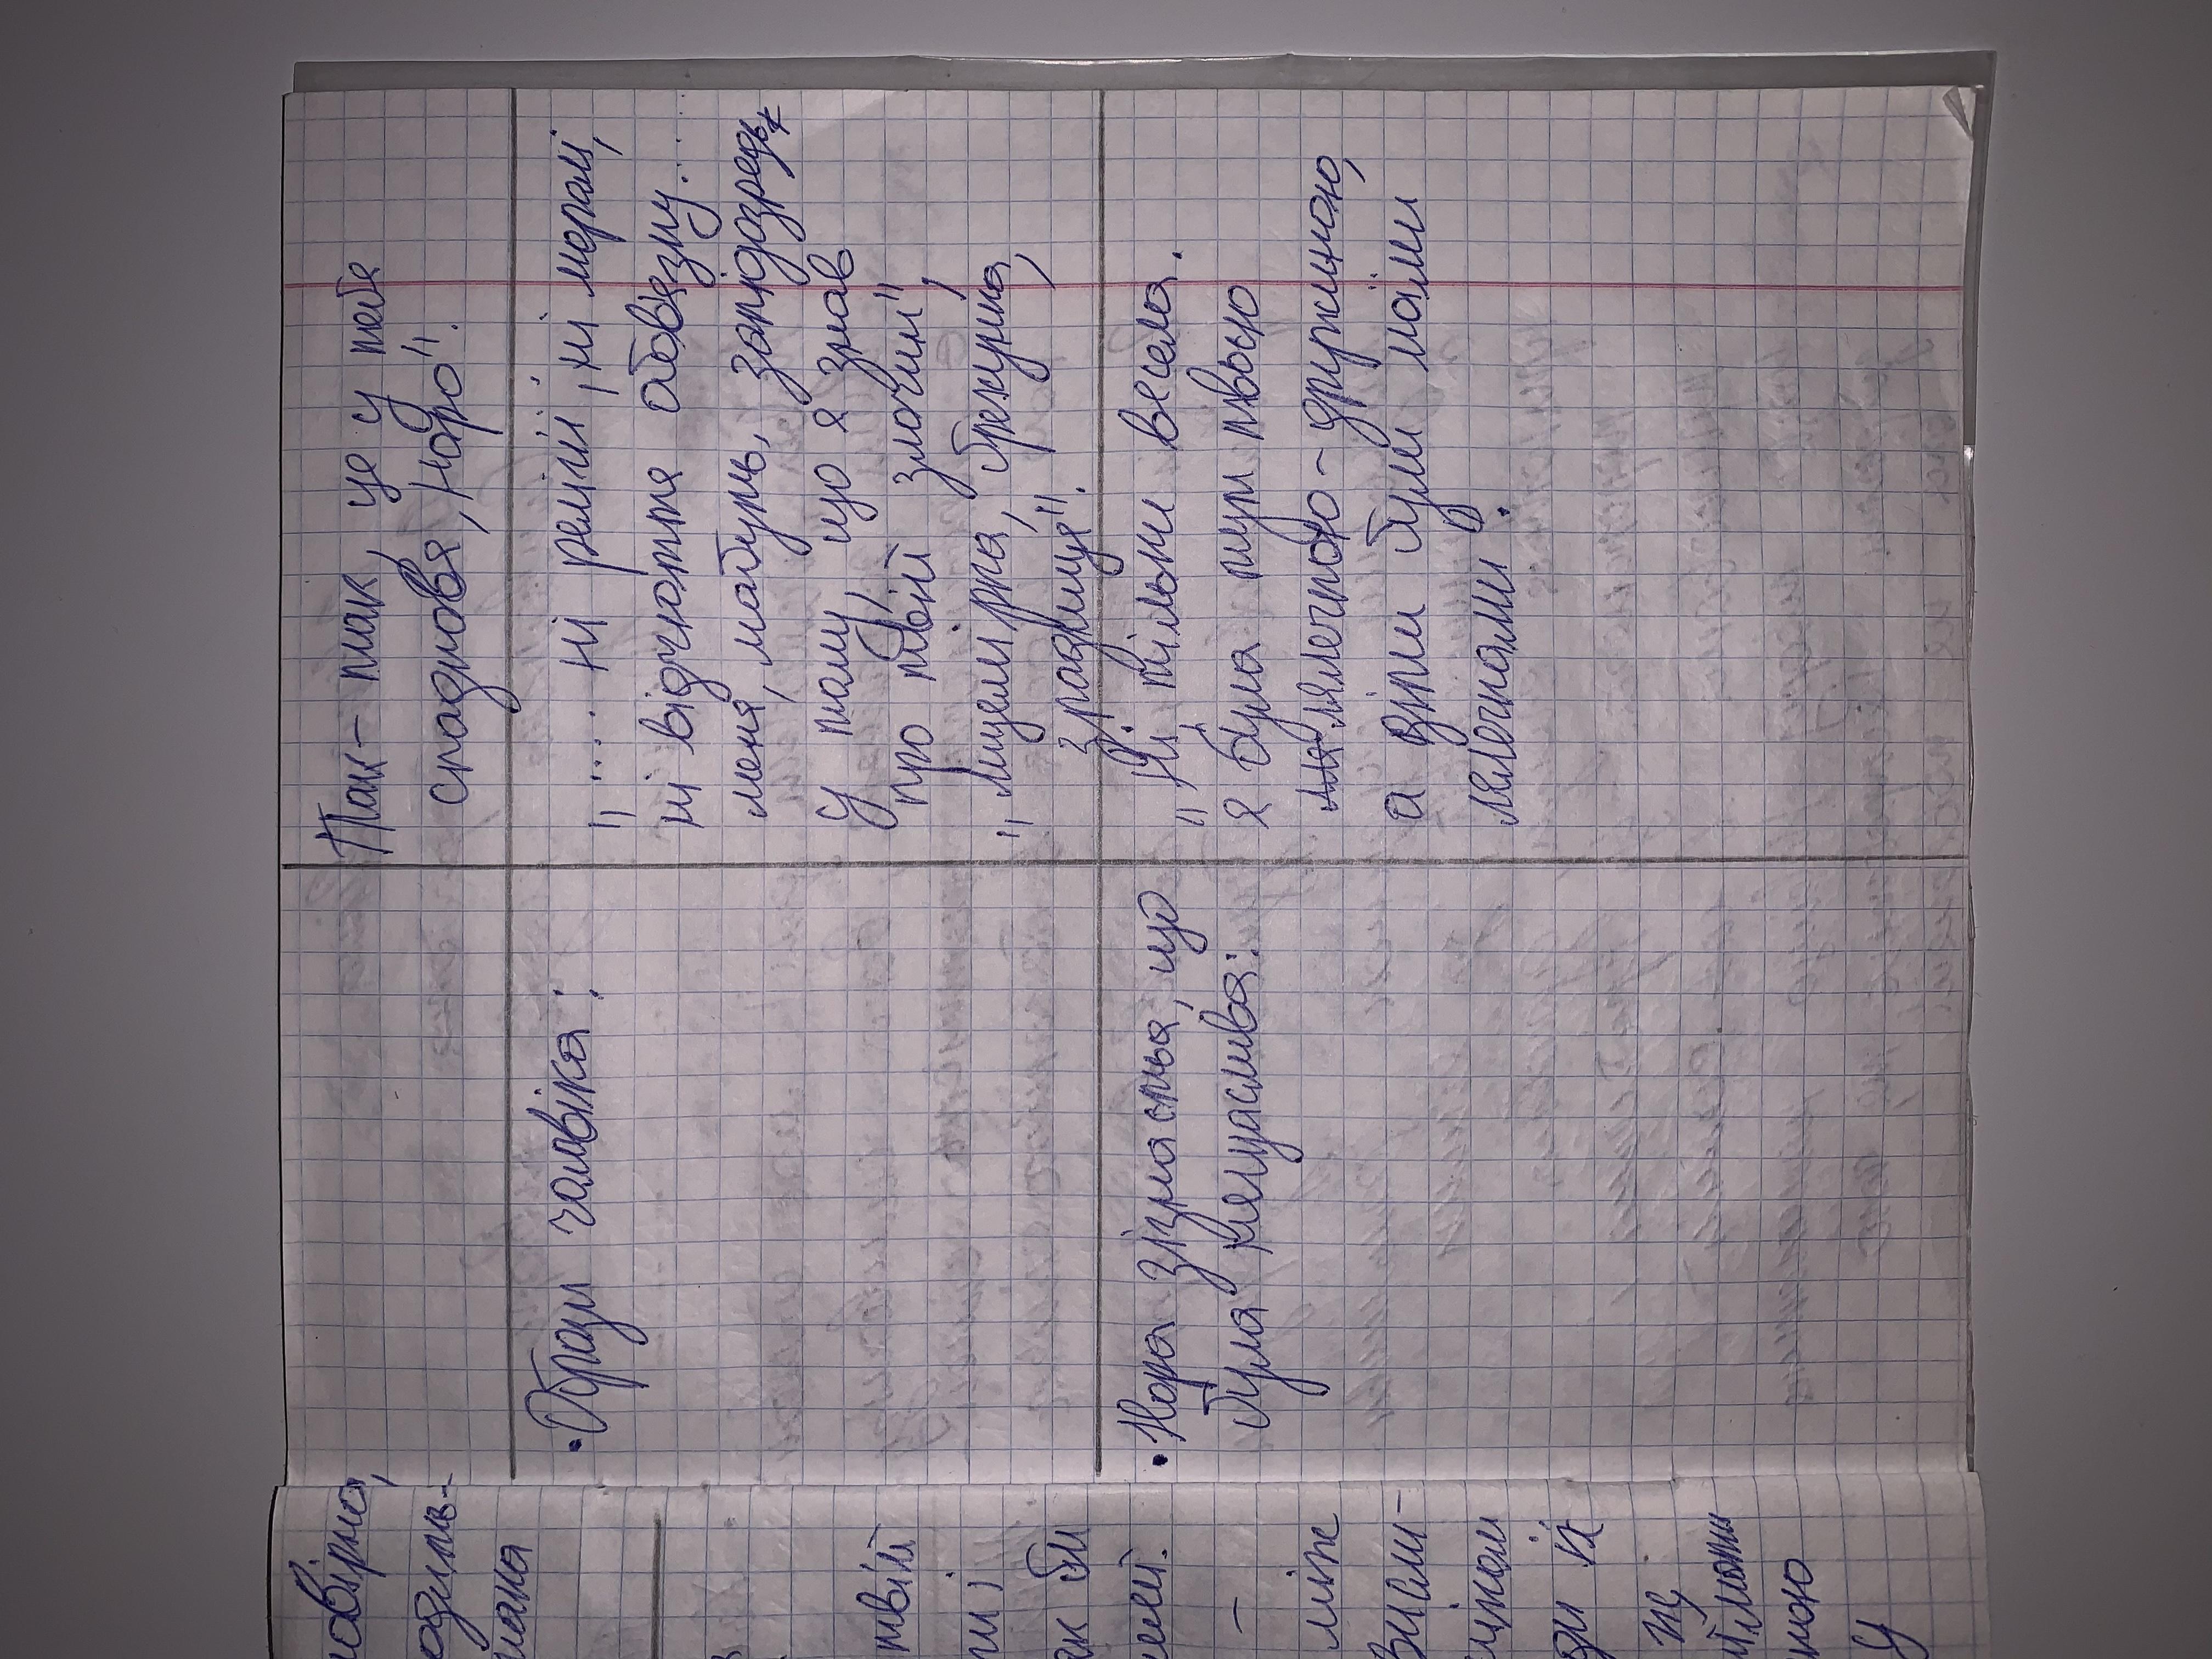 Так-так, це у тебе
спадкове, Норо".
• Образи чоловіка:
"... ні релігії, ні моралі,
ні відчуття обов'язку...
мене, мабуть, запідозреть
у тому, що я знав
про твій злочин",
"лицемірка, брехунка,
зрадниця".
• Нора зізнається, що
була нещаслива:
"Ні. тільки весела.
я була тут твоєю
лялечкою-дружиною,
а діти були моїми
лялечками".
твій
ак би
між
їх
У